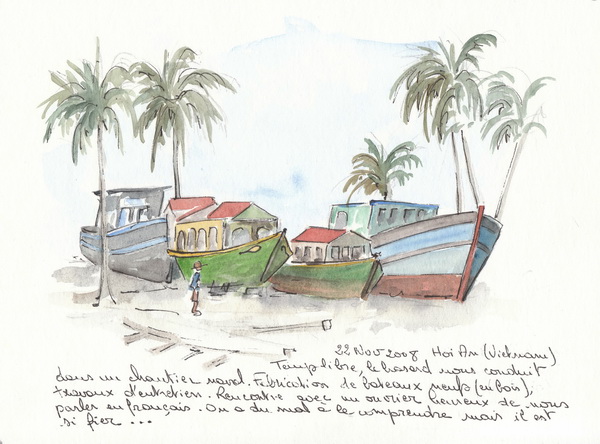 22 Nov 2008 Hoi An (Vietnam)
Temps libre, le hasard nous conduit
dans un chantier naval. Fabrication de bateaux neufs (en bois),
travaux d'entretien. Rencontre avec un ouvrier heureux de nous
parler en français. On a du mal à le comprendre mais il est
si fier ...